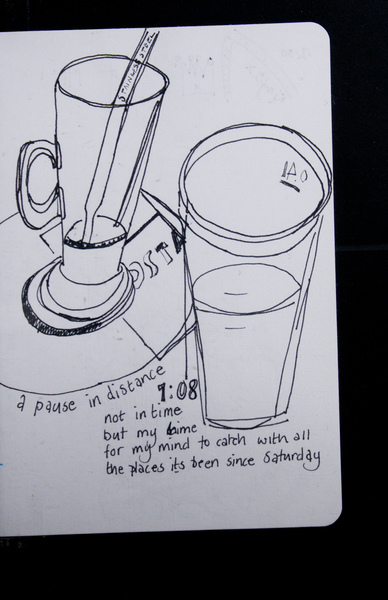 STAINLESS STEEL
1A.0
OSTA
a pause in distance
7:08
not in time
but my time
for my mind to catch with all
the places its been since Saturday